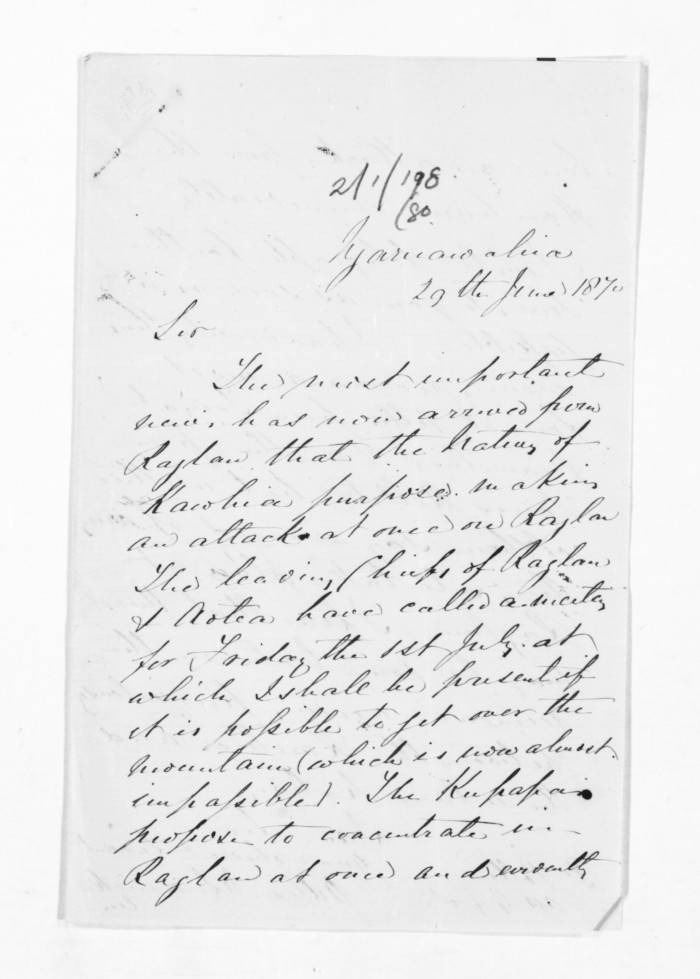 2/1/198
/80
Ngaruawahia
29th June 1870
Sir
The most important
news has now arrived from
Raglan that the Natives of
Kawhia purpose making
an attack at once on Raglan
The leading Chiefs of Raglan
& Aotea have called a meeting
for Friday the 1st July. at
which I shall be present if
it is possible to get over the
mountain (which is now almost
impassible). The Kupapas
propose to concentrate in
Raglan at once and evidently